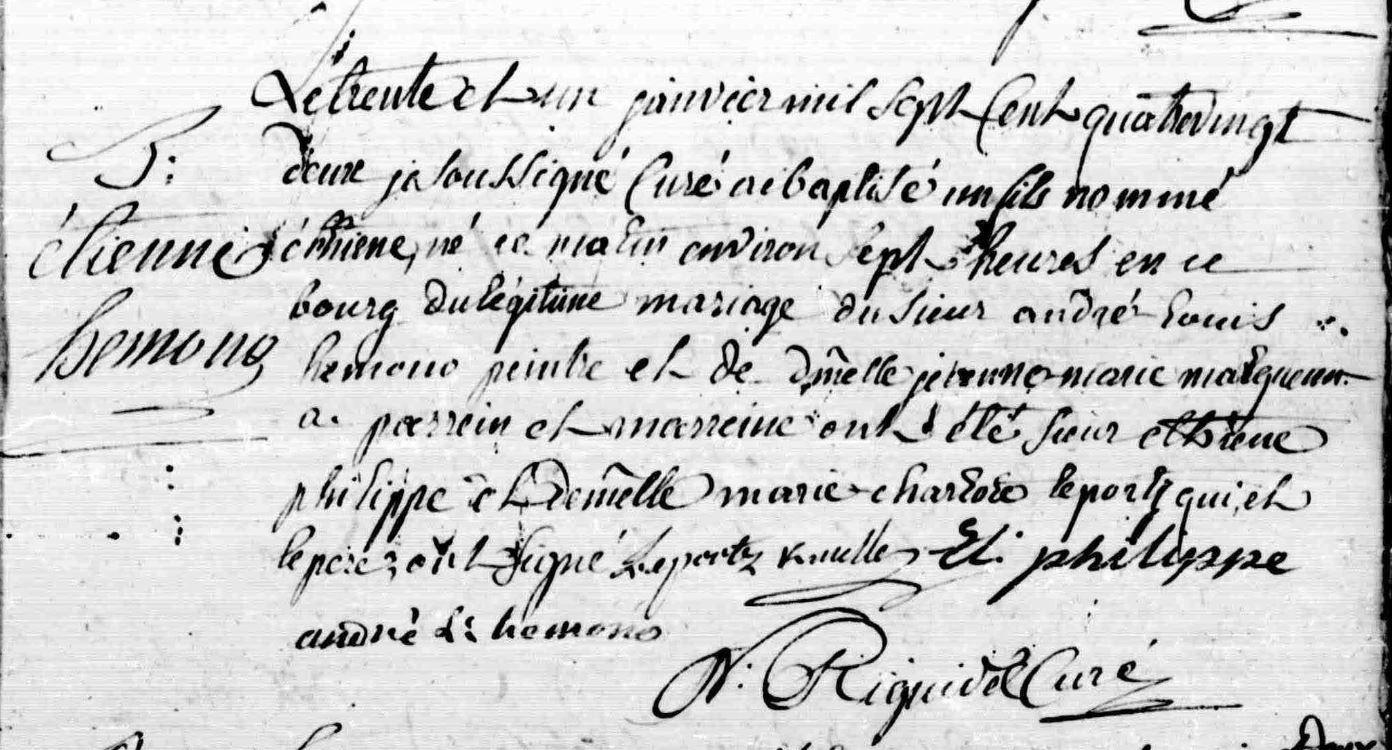 B:
étienne
hemono
Le trente et un janvier mil sept Cent quatrevingt
deux je soussigné Curé ai baptisé un fils nommé
éthiene, né ce matin environ sept heures en ce
bourg du légitime mariage du sieur andré Louis
hemono peintre et de dmelle jeanne marie
parrein et marreine ont été sieur ethiene
philippe et demelle marie charlote leportz qui, et
le pere, ont signé Leportz Et: philippe
andré Ls hemono
N: Riguidel Curé